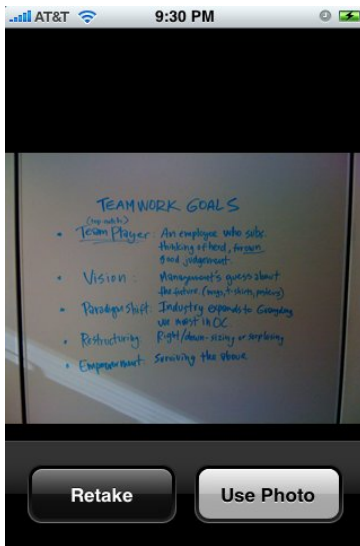 AT&T 9:30 PM
TEAMWORK GOALS
(top-notch)
• Team Player: An employee who subs.
thinking of herd, forgoes
good judgement
• Vision: Management's guess about
the future. (mugs, t-shirts, posters)
• Paradigm Shift: Industry expands to
we most in OC
• Restructuring Right/down-sizing or simplexing
• Empowerment: Surviving the above
Retake Use Photo